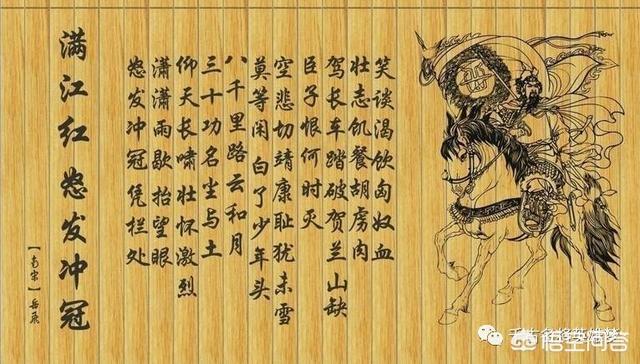 满江红 怒发冲冠
【南宋】岳飞
怒发冲冠凭栏处
潇潇雨歇抬望眼
仰天长啸壮怀激烈
三十功名尘与土
八千里路云和月
莫等闲 白了少年头
空悲切靖康耻犹未雪
臣子恨何时灭
驾长车踏破贺兰山缺
壮志饥餐胡虏肉
笑谈渴饮匈奴血
悟空问答